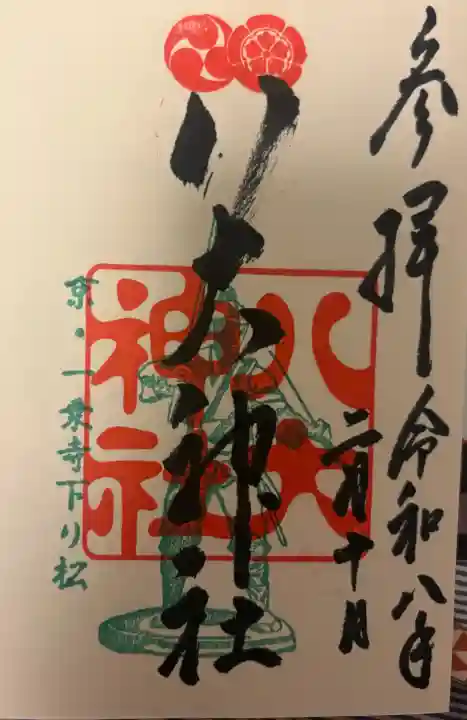 参拝 令和八年
二月十日
八大神社
八大
神社
京・一乗寺下り松